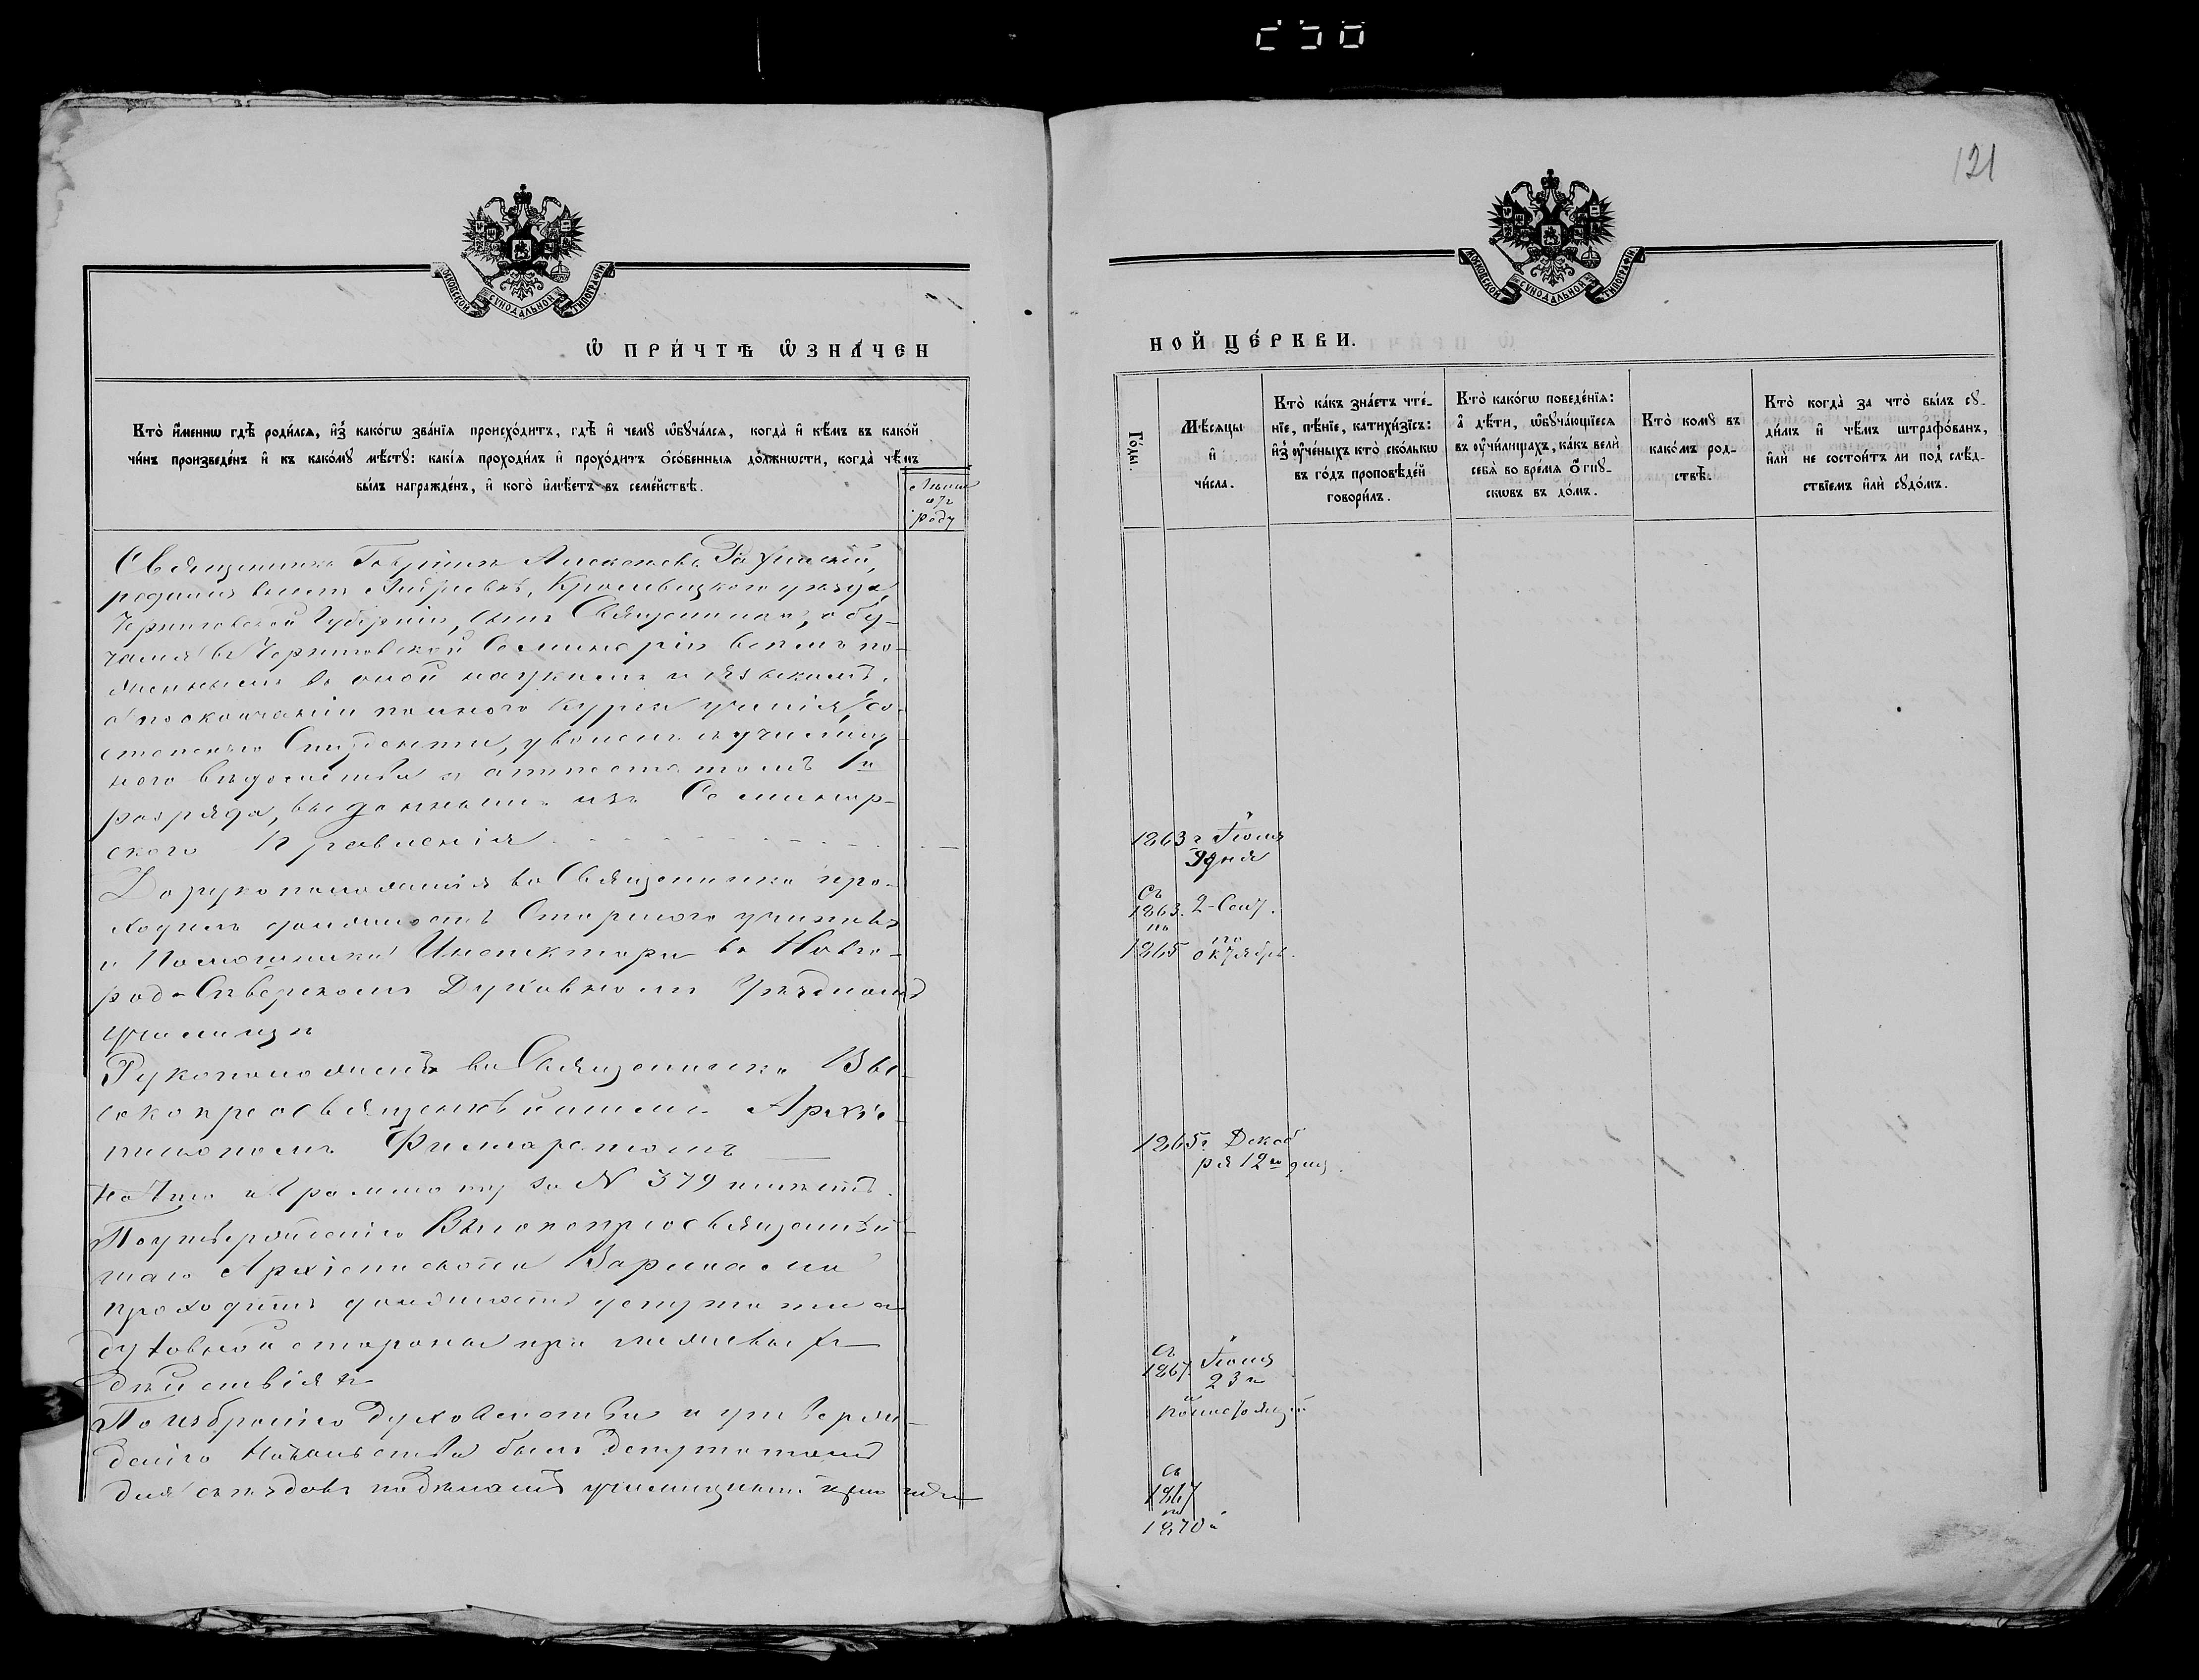 121
МОСКОВСКОЙ СѴНОДАЛЬНОЙ ТИПОГРАФІИ
Ѡ ПРИ́ЧТѢ Ѡ҆ЗНА́ЧЕН
Кто̀ и҆́меннѡ гдѣ̀ роди́лсѧ, и҆з̾ како́гѡ зва́нїѧ происхо́дитъ, гдѣ̀ и҆ чемꙋ̀ ѡ҆бꙋча́лсѧ, когда̀ и҆ кѣ́мъ въ како́й
чи́нъ произведе́нъ и҆ къ како́мꙋ мѣ́стꙋ: какі̑ѧ проходи́лъ и҆ прохо́дитъ ѻ҆со́бенныѧ до́лжности, когда̀ чѣ́мъ
бы́лъ награжде́нъ, и҆ кого̀ и҆мѣ́етъ въ семе́йствѣ.
Лѣта
отъ
роду
Священникъ Гавріилъ Алексѣевъ
родился въ селѣ Кролевецкаго уѣзда
Черниговской Губерніи, сынъ Священника, обу-
чался въ Черниговской Семинаріи всѣмъ по-
ложеннымъ въ оной наукамъ и языкамъ,
а по окончаніи полнаго курса ученія, со
степенью Студента, уволенъ изъ училищ-
наго вѣдомства съ аттестатомъ 1го
разряда, выданнымъ изъ Семинар-
скаго Правленія
До рукоположенія во Священника про-
ходилъ должность Старшаго учителя
и Помощника Инспектора въ Новго-
род-Сѣверскомъ Духовномъ Уѣздномъ
училищѣ
Рукоположенъ во Священника Вы-
сокопреосвященнѣйшимъ Архіе-
пископомъ Филаретомъ
На что и Грамоту за N 379 имѣетъ.
По утвержденію Высокопреосвященнѣй-
шаго Архіепископа Варлаама
проходитъ должность депутата съ
духовной стороны при
дѣйствіяхъ
По избранію Духовенства и утверж-
денію Начальства былъ Депутатомъ
для съѣздовъ по дѣламъ училищнымъ
НОЙ ЦЕ́РКВИ.
Го́ды.
Мѣ́сѧцы
и҆
чи́сла.
Кто̀ ка́къ зна́етъ чте́-
нїе, пѣ́нїе, катихи́зїсъ:
и҆з̾ ᲂу҆че́ныхъ кто̀ ско́лькѡ
въ го́дъ проповѣ́дей
говори́лъ.
Кто̀ како́гѡ поведе́нїѧ:
а҆ дѣ́ти, ѡ҆бꙋча́ющїесѧ
въ ᲂу҆чи́лищахъ, ка́къ велѝ
себѧ̀ во вре́мѧ ѿпꙋ-
скѡвъ въ до́мъ.
Кто̀ комꙋ̀ въ
како́мъ род-
ствѣ̀.
Кто̀ когда̀ за что̀ бы́лъ сꙋ-
ди́мъ и҆ чѣ́мъ штрафо́ванъ,
и҆лѝ не состои́тъ ли под̾ слѣ́д-
ствїемъ и҆лѝ сꙋдо́мъ.
1863 г Іюля
дня
Съ
1863. 2 Сент.
по по
1865 октябрь.
1865 г. Декаб
ря 12го дня
Съ
1867 Іюля
23го
и
по настоящій
Съ
1867
по
1870й